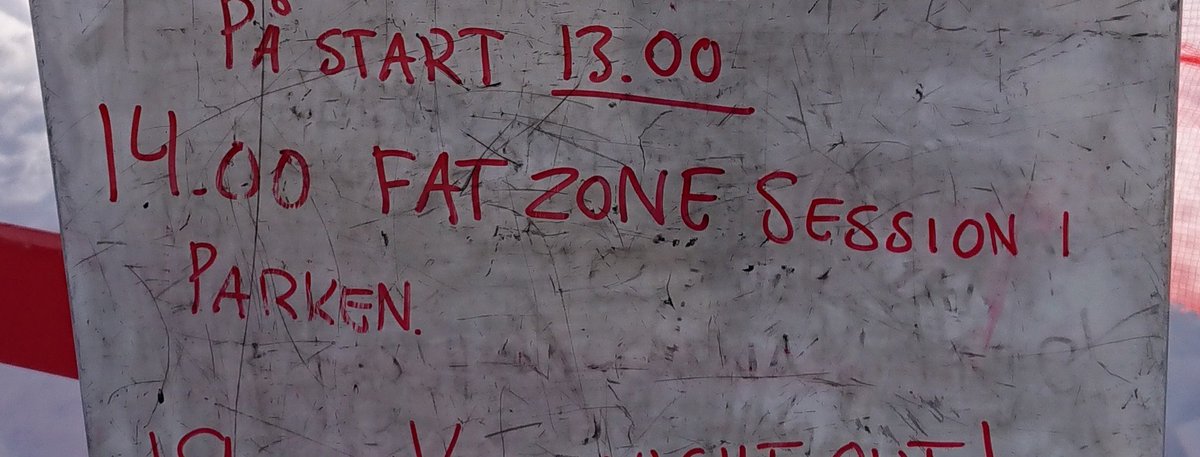 PÅ START 13.00
14.00 FAT ZONE SESSION 1
PARKEN.
OUT!